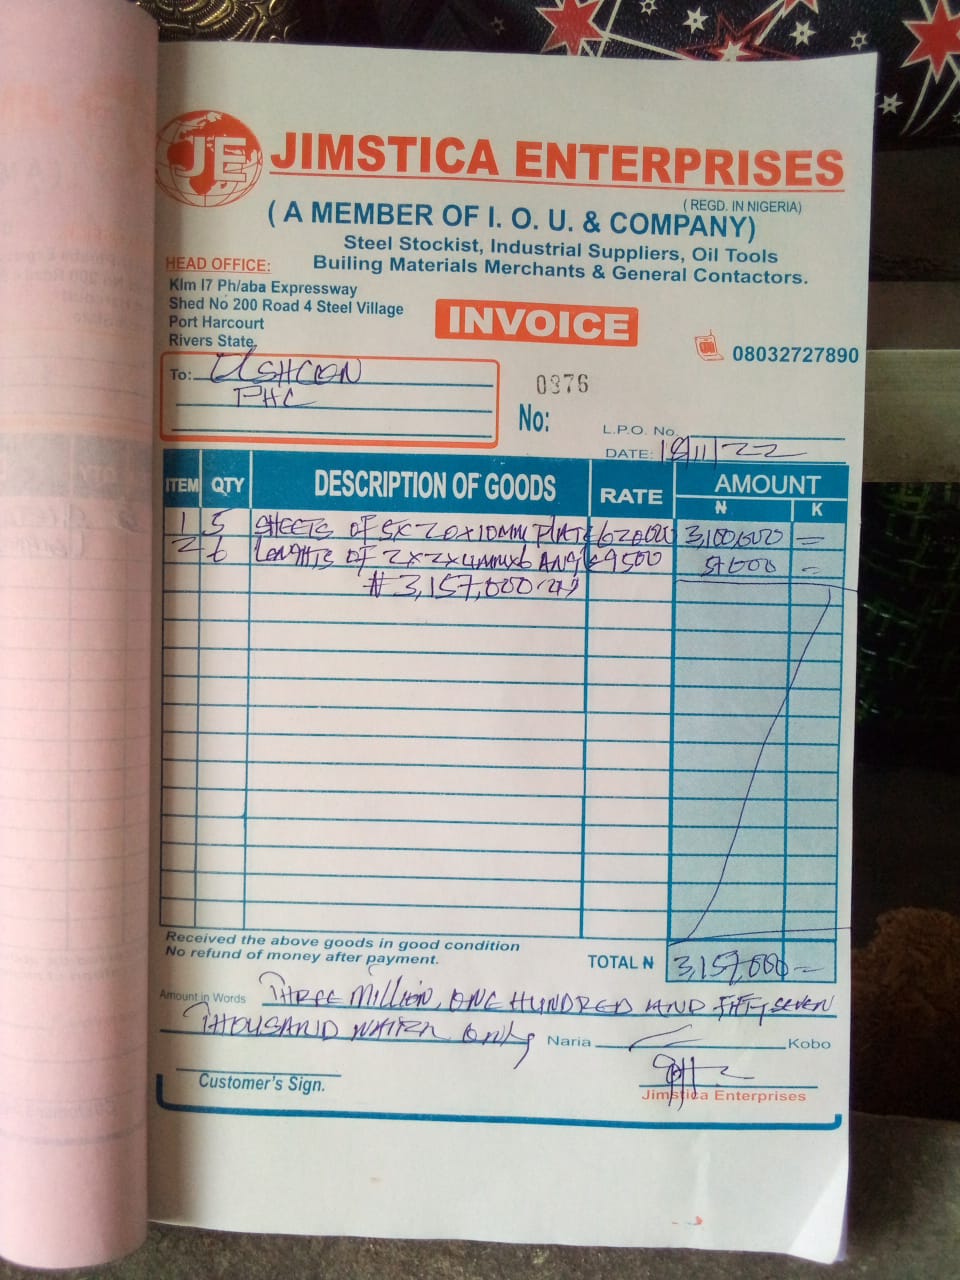 JE
JIMSTICA ENTERPRISES
(REGD. IN NIGERIA)
( A MEMBER OF I. O. U. & COMPANY)
Steel Stockist, Industrial Suppliers, Oil Tools
Builing Materials Merchants & General Contactors.
HEAD OFFICE:
Klm I7 Ph/aba Expressway
Shed No 200 Road 4 Steel Village
Port Harcourt
Rivers State.
INVOICE
08032727890
To:
PHC
0376
No:
L.P.O. No.
DATE: 18/11/22
ITEM QTY DESCRIPTION OF GOODS RATE AMOUNT
₦ K
1 5 SHEETS OF 5X20X10MM PLATE 620000 3,100,000 =
2 6 LENGHTS OF 2X2X4MMX6 ANGLE 9500 57,000 =
₦3,157,000
Received the above goods in good condition
No refund of money after payment.
TOTAL ₦ 3,157,000 =
Amount in Words THREE MILLION, ONE HUNDRED AND FIFTY SEVEN
THOUSAND NAIRA ONLY Naria Kobo
Customer's Sign.
Jimstica Enterprises